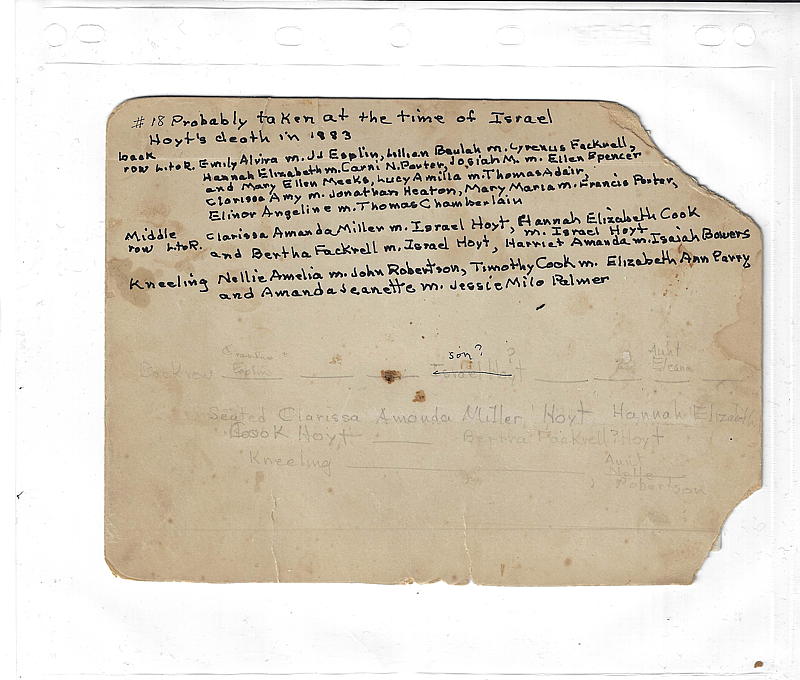 #18 Probably taken at the time of Israel
Hoyt's death in 1883
back
row L to R. Emily Alvira m. JJ Esplin, Lillian Beulah m. Cyrenus Fackrell,
Hannah Elizabeth m. Carni N. Porter, Josiah M. m. Ellen Spencer
and Mary Ellen Meeks, Lucy Amilla m. Thomas Adair,
Clarissa Amy m. Jonathan Heaton, Mary Maria m. Francis Porter,
Elinor Angeline m. Thomas Chamberlain
Middle
row L to R. Clarissa Amanda Miller m. Israel Hoyt, Hannah Elizabeth Cook
m. Israel Hoyt
and Bertha Fackrell m. Israel Hoyt, Harriet Amanda m. Isaiah Bowers
Kneeling Nellie Amelia m. John Robertson, Timothy Cook m. Elizabeth Ann Parry
and Amanda Jeanette m. Jessie Milo Palmer
son? ?
Aunt
Back row Esplin Israel Hoyt
Seated Clarissa Amanda Miller Hoyt Hannah Elizabeth
Cook Hoyt Bertha Fackrell? Hoyt
Kneeling Aunt
Nelle
Robertson